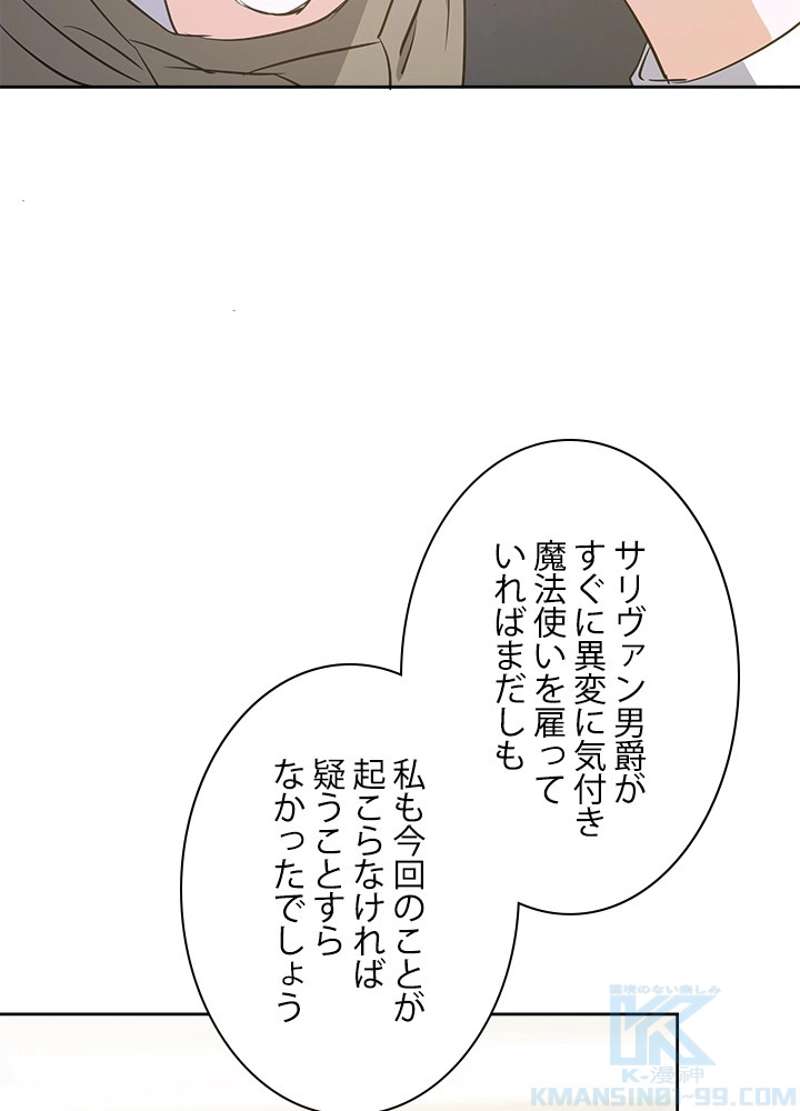 サリヴァン男爵が
すぐに異変に気付き
魔法使いを雇って
いればまだしも
私も今回のことが
起こらなければ
疑うことすら
なかったでしょう
国境のない楽しみ
K-漫神
KMANSIN01-99.COM